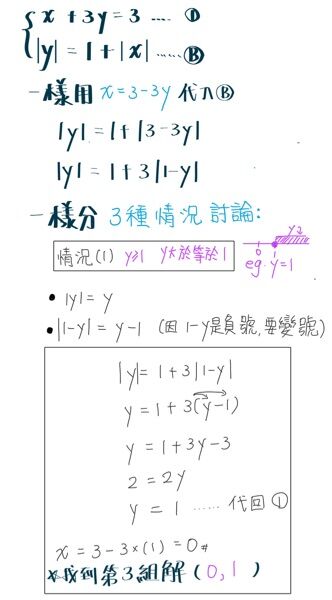 x + 3y = 3 .... ①
|y| = 1 + |x| ..... Ⓑ
一樣用 x=3-3y 代入Ⓑ
|y| = 1+|3-3y|
|y| = 1+3|1-y|
一樣分 3種情況討論:
情況(1) y≥1 y大於等於1
0 1
eg. y=1
• |y| = y
• |1-y| = y-1 (因 1-y是負號,要變號)
|y| = 1+3|1-y|
y = 1+3(y-1)
y = 1+3y-3
2 = 2y
y = 1 ...... 代回①
x = 3-3×(1) = 0#
*找到第3組解(0,1)